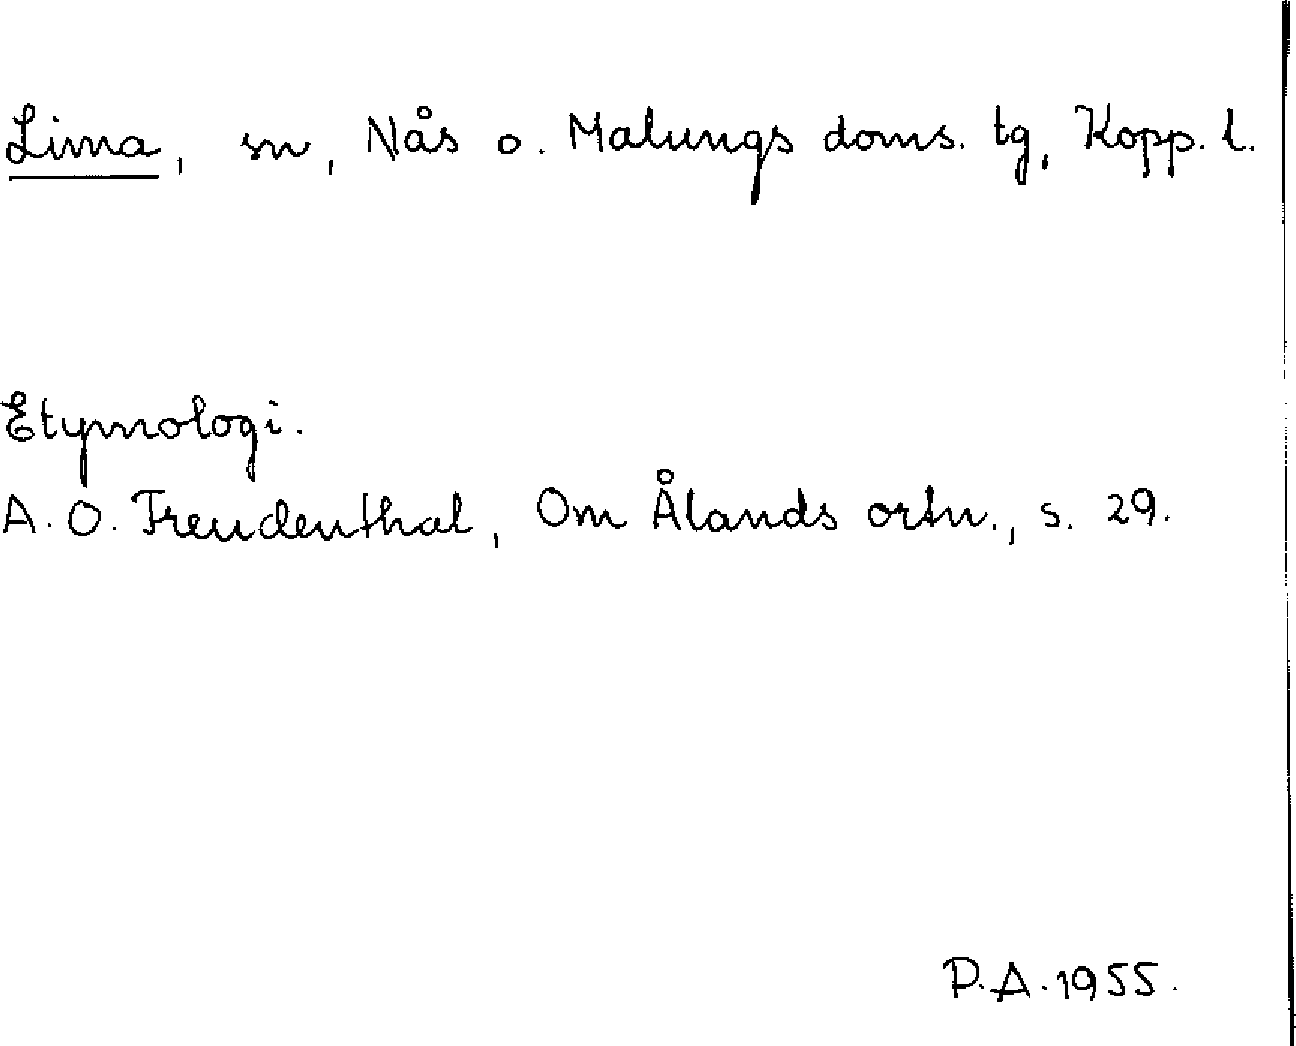 Lima, sn, Nås o. Malungs doms. tg, Kopp. l.
Etymologi.
A. O. Freudenthal, Om Ålands ortn., s. 29.
P.A. 1955.